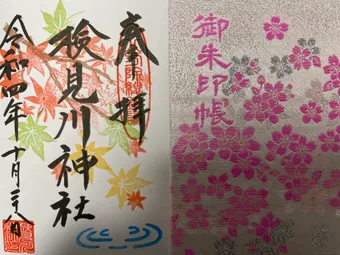 御朱印帳
奉拝
検見川神社
令和四年十月二八日